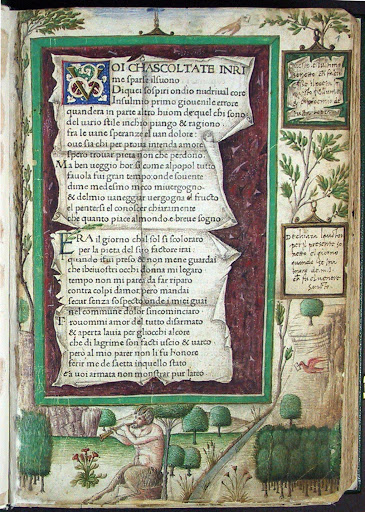 VOI CHASCOLTATE INRI
me sparse ilsuono
Di quei sospiri ondio nudriual core
Insulmio primo giouenile errore
quandera in parte altro huom da quel chi sono
del uario stile inchio piango & ragiono
fra le uane speranze el uan dolore:
oue sia chi per proua intenda amore
spero trouar pieta non che perdono.
Ma ben ueggio hor si come alpopol tutto
fauola fui gran tempo: onde souente
di me medesmo meco mi uergogno:
& delmio uaneggiar uergogna el fructo
el pentersi el conoscer chiaramente
che quanto piace almondo e breue sogno
ERA il giorno chal sol si scoloraro
per la pieta del suo factore irai
quando i fui preso & non mene guardai
che ibeiuostri occhi donna mi legaro
tempo non mi parea da far riparo
contra colpi damor: pero mandai
secur senza sospecto onde i miei guai
nel commune dolor sincominciaro
Trouommi amor del tutto disarmato
& aperta lauia per gliocchi alcore
che di lagrime son facti uscio & uarco
pero al mio parer non li fu honore
ferir me de saetta inquello stato
a uoi armata non mostrar pur larco